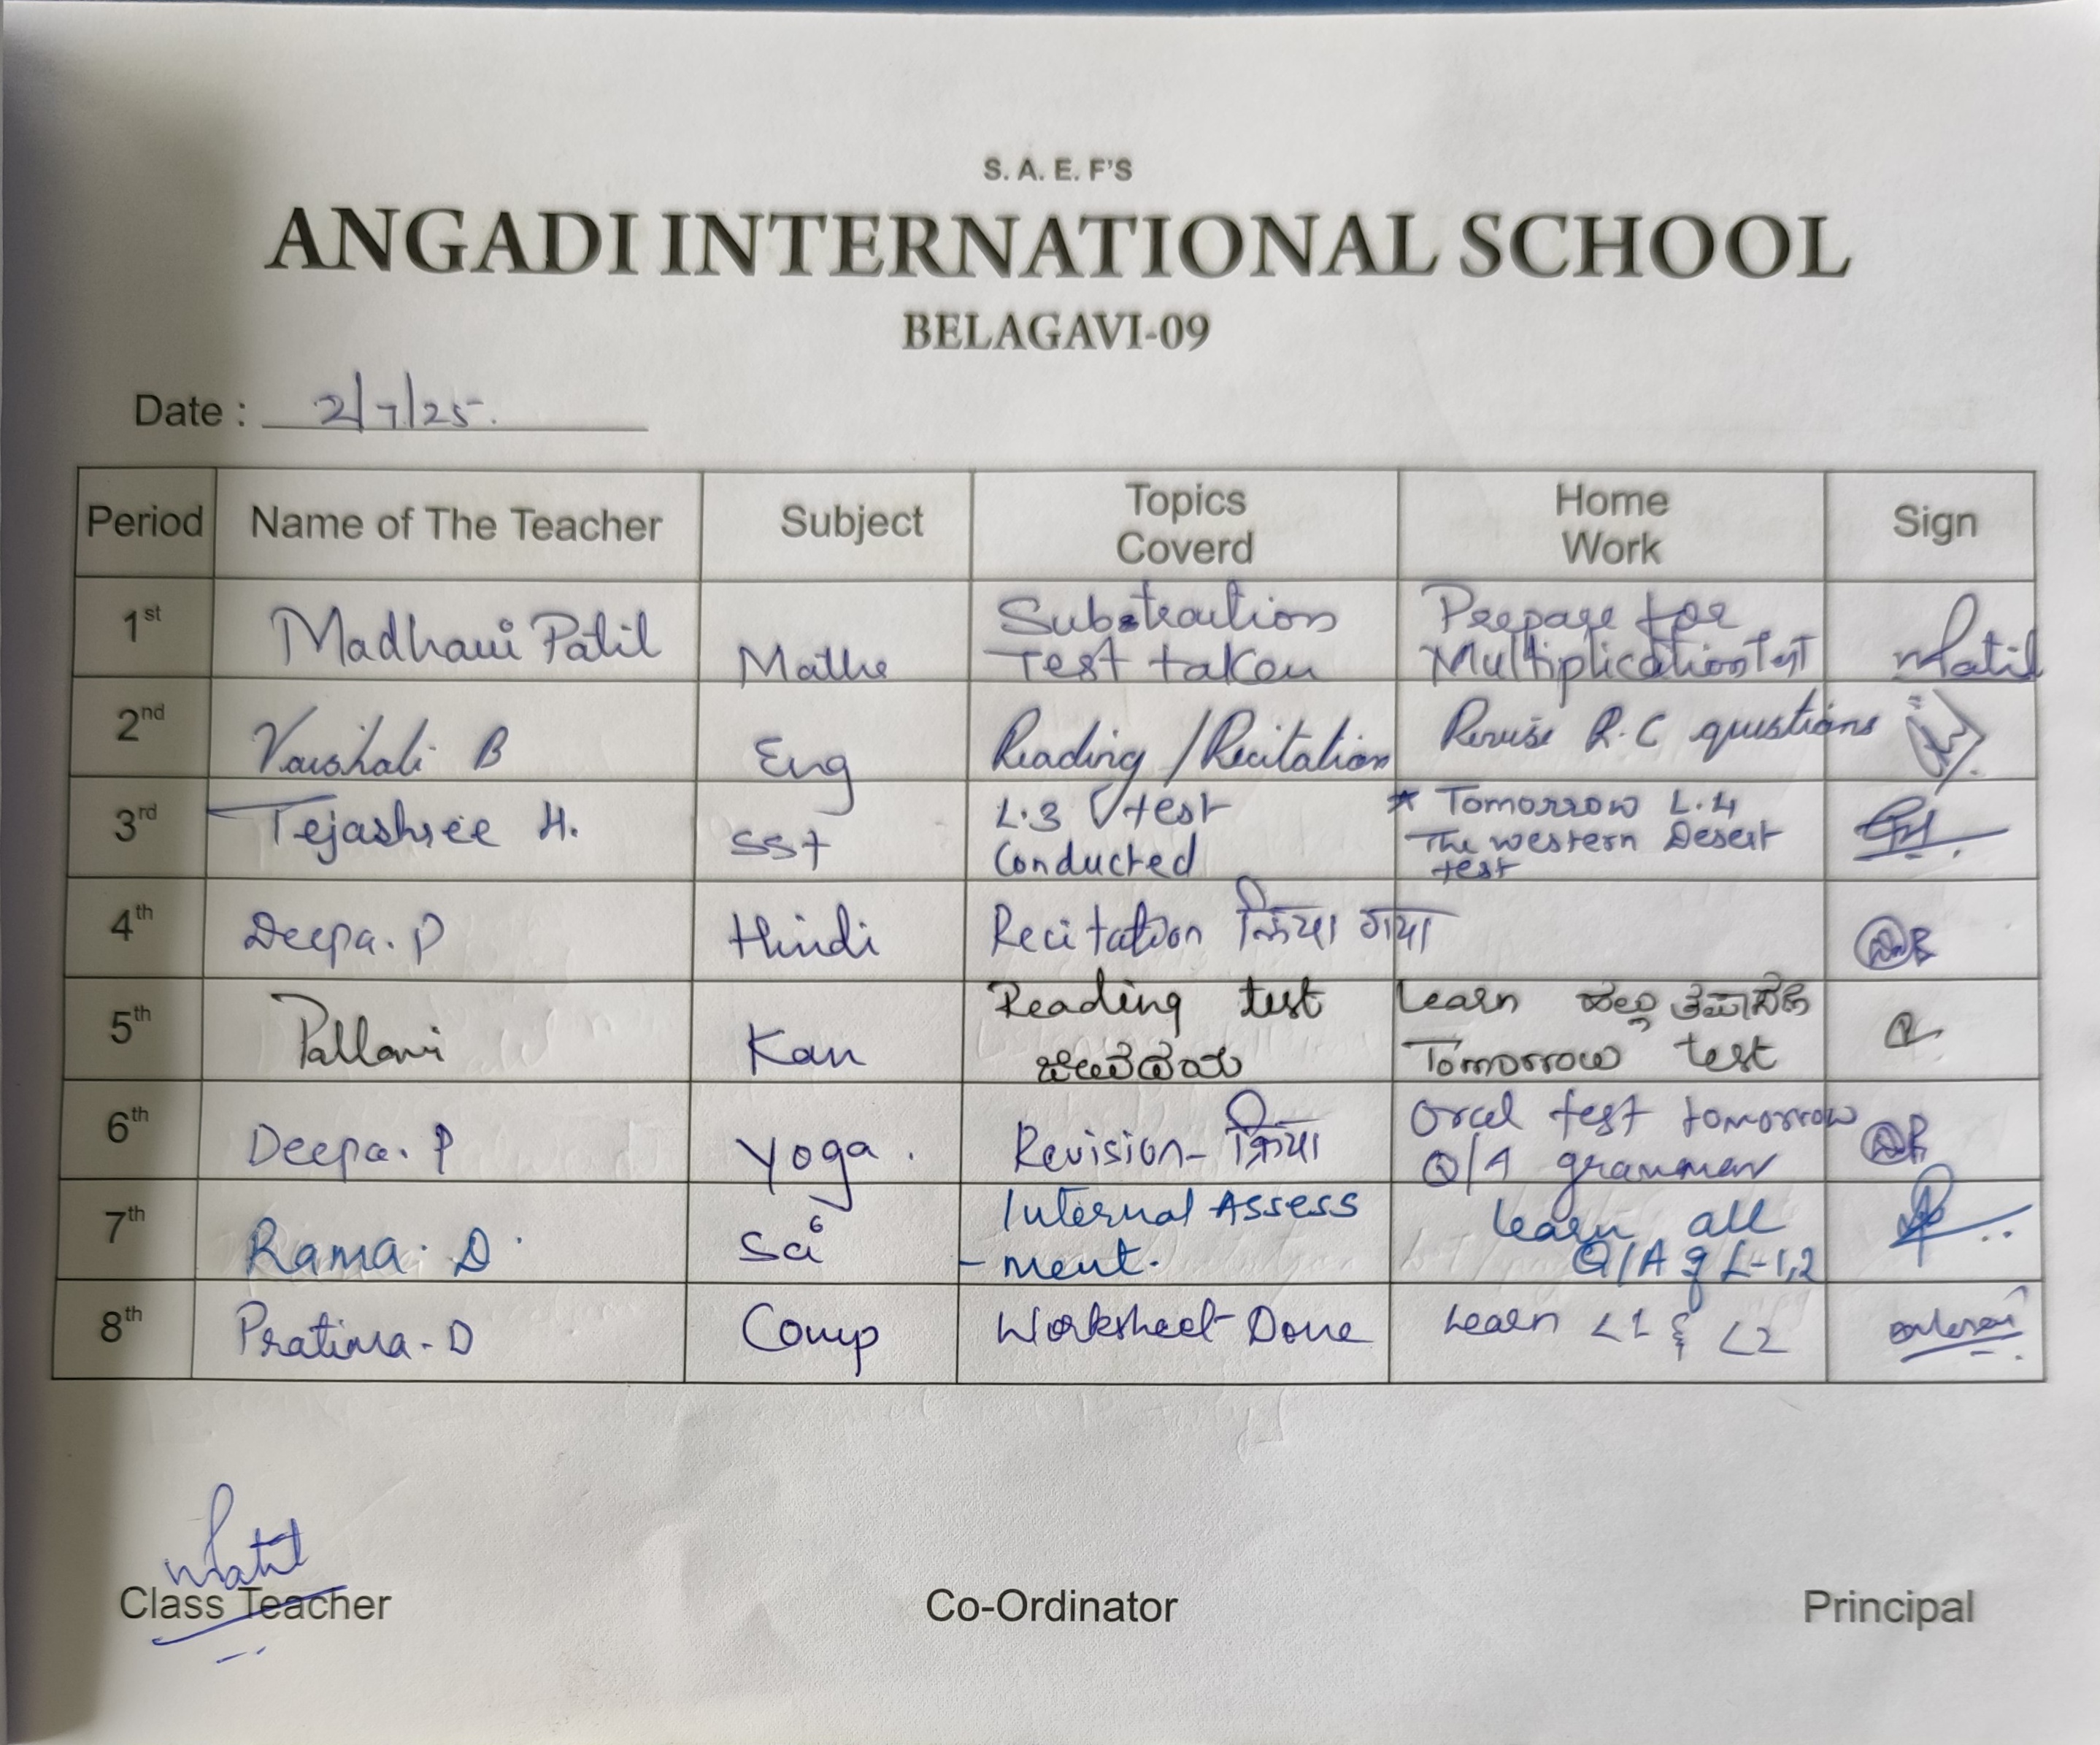 S. A. E. F'S
ANGADI INTERNATIONAL SCHOOL
BELAGAVI-09
Date : 2/7/25.
Period Name of The Teacher Subject Topics Coverd Home Work Sign
1st Madhavi Patil Maths Substraction Test taken Prepare for Multiplication Test MPatil
2nd Vaishali B Eng Reading / Recitation Revise R.C questions
3rd Tejashree H. SST L.3 test Conducted * Tomorrow L.4 The western Desert test
4th Deepa. P Hindi Recitation किया गया
5th Pallavi Kan Reading test Learn Tomorrow test
6th Deepa. P Yoga. Revision- क्रिया Oral test tomorrow Q/A grammar
7th Rama. D. Sci Internal Assess-ment. learn all Q/A of L-1,2
8th Pratima. D Comp Worksheet Done Learn L1 & L2
MPatil
Class Teacher Co-Ordinator Principal